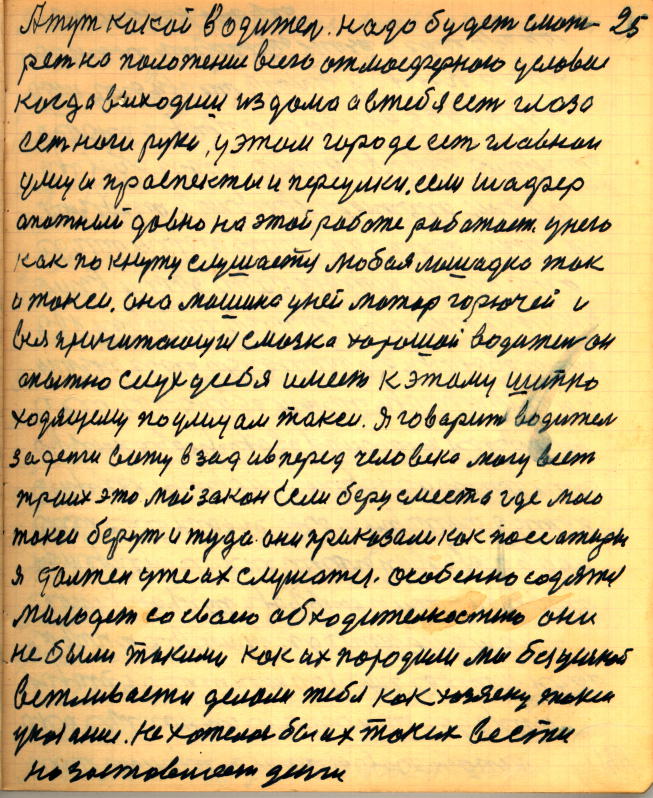 А тут какой водител. надо будет смот- 25
рет на положение всего отмосферного условие
когда выходиш из дома а втебя ест глаза
ест ноги руки, у этом городе ест главнои
улицы праспекты и переулки. если шафер
опотный довно на этой работе работает. у него
как по кнуту слушаетца любая лошадка так
и такси. она машина у ней мотор горючей и
вся причитающия смазка хорошой водител он
опытно слух усебя имеет к этому шипко
ходящему по улицам такси. Я говорит водител
за денги вожу в зад и вперед человека могу вест
траих это мой закон если беру сместа где мою
такси берут и туда. они приказали как поссажиры
я должен уже их слушат. особенно содятца
молодет со своею обходителностию они
не были такими как их породили мы без усякой
ветливасти делали тебя как хозяену такси
указание. Не хотелос бы их таких вести
но заставляет денги